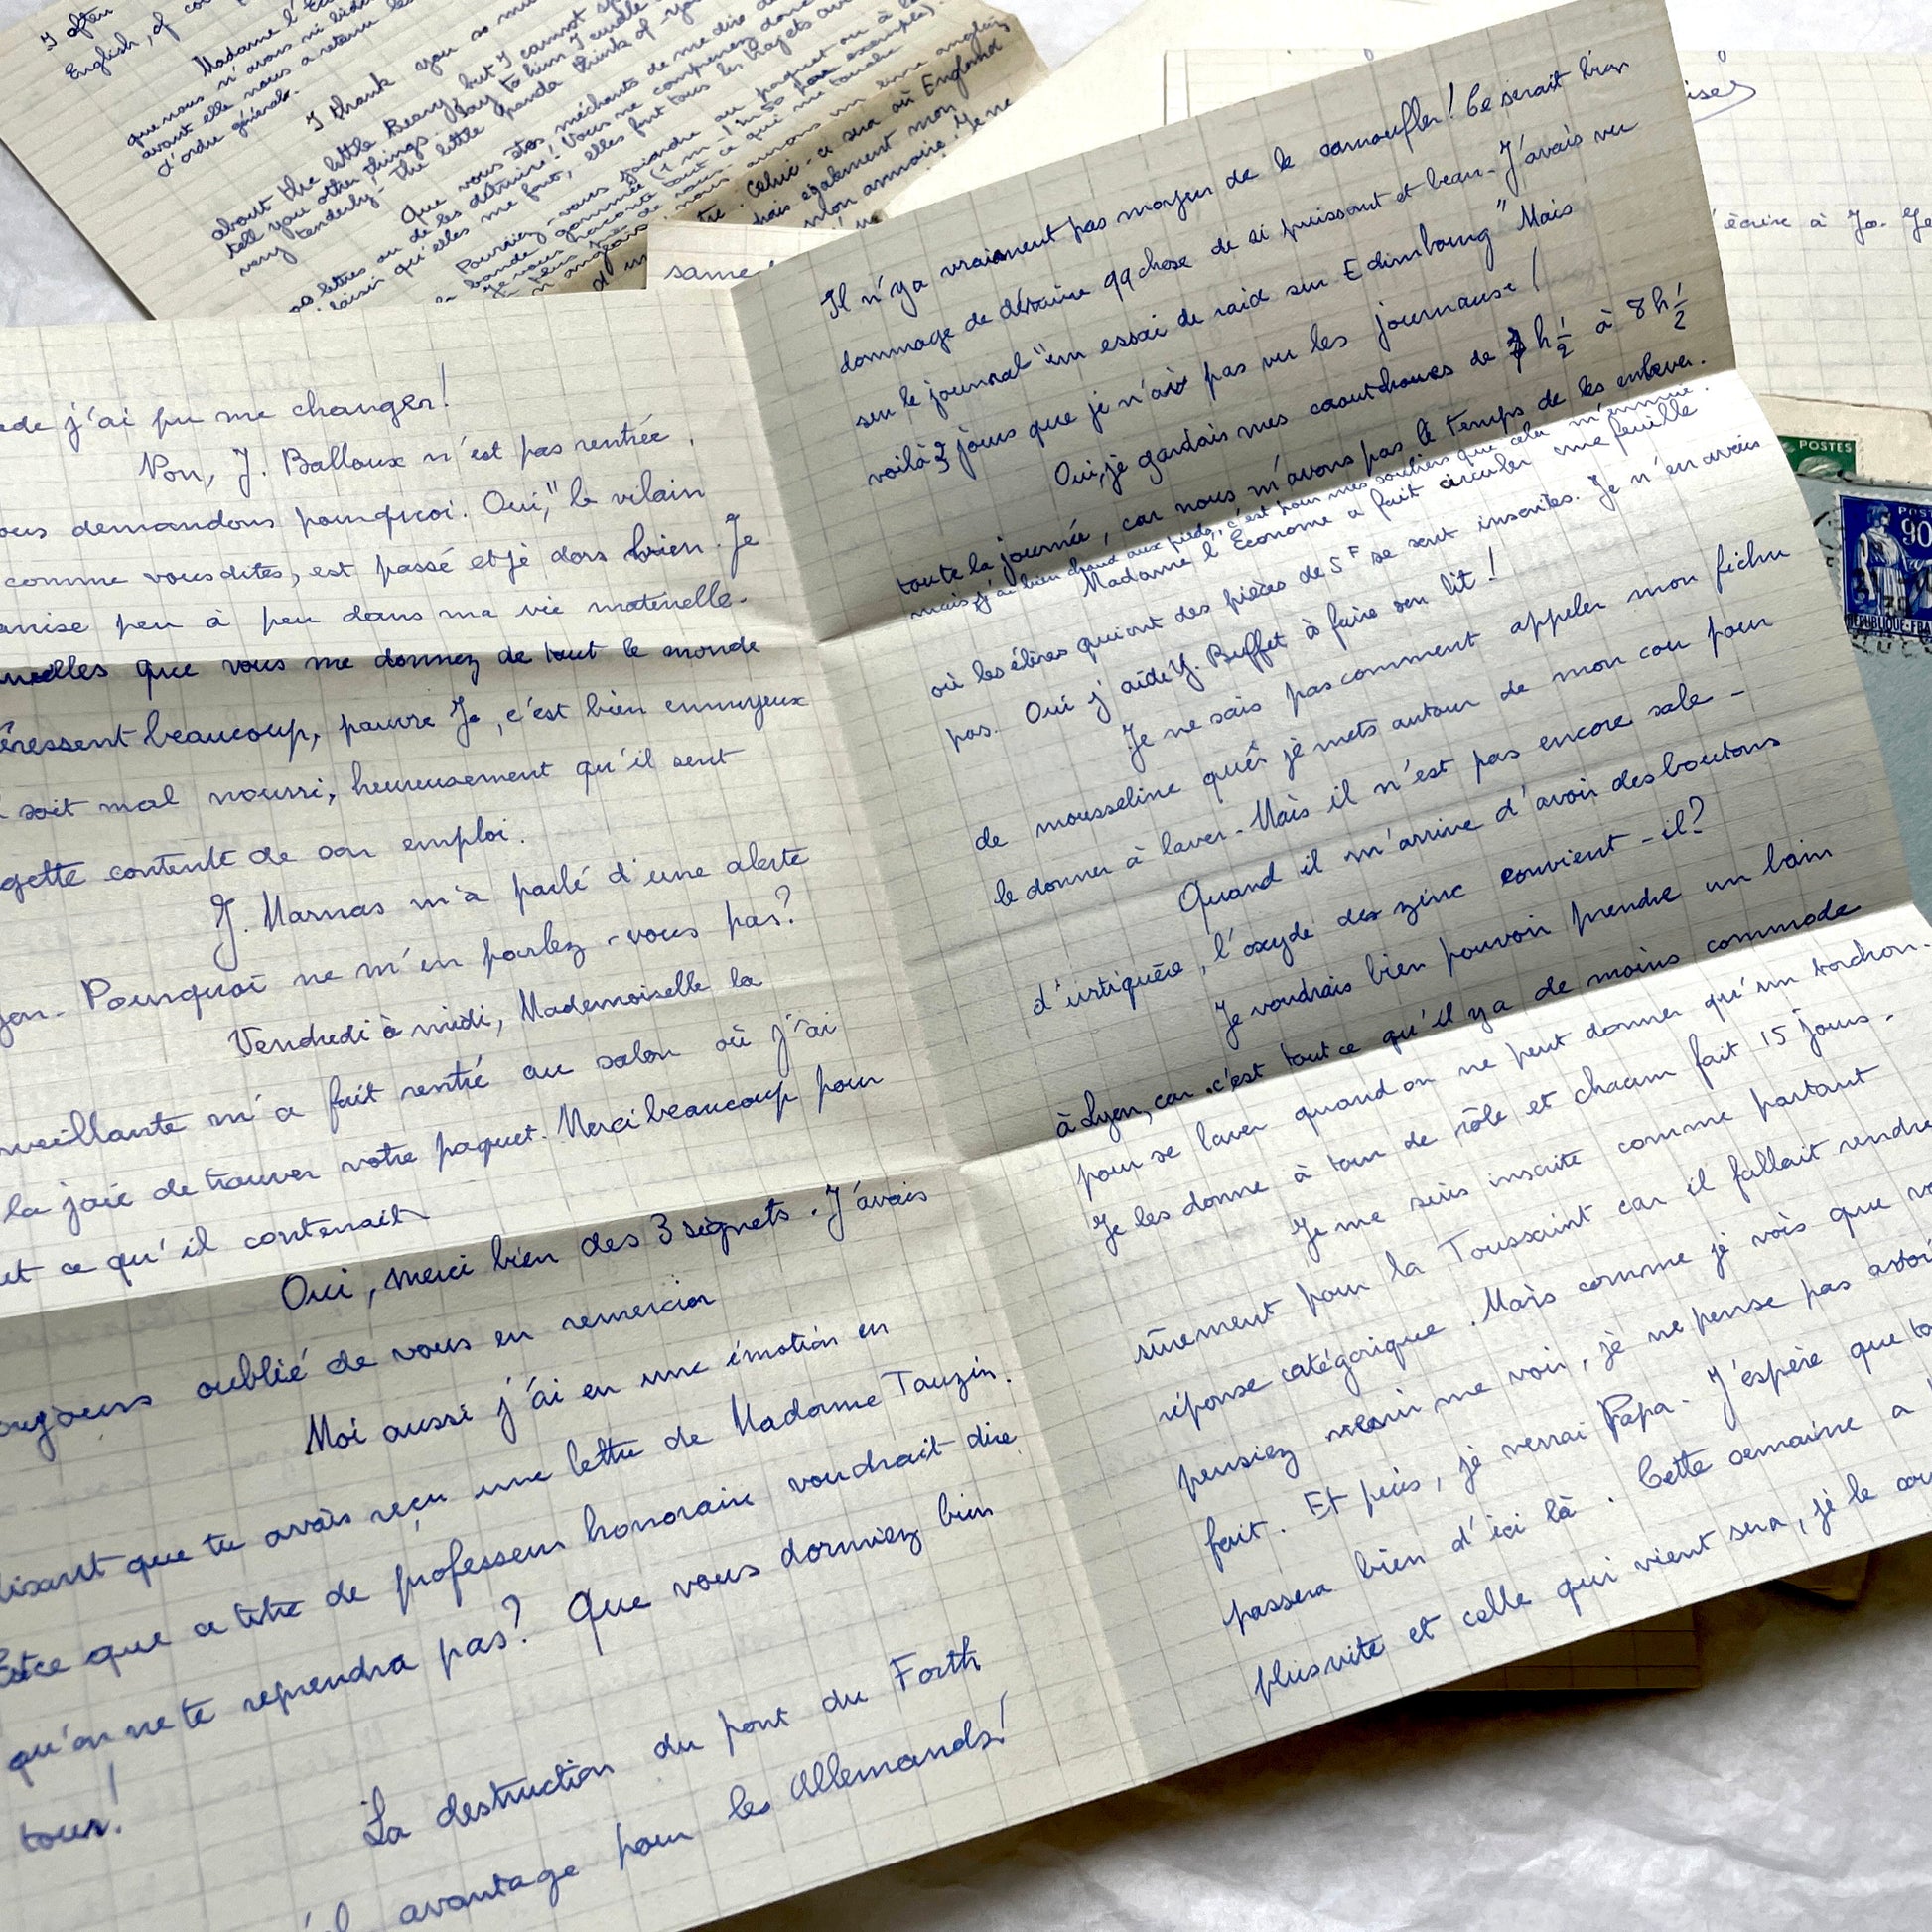 I often
English, of
Madame l'
que nous n'avons ni
avant elle nous a retenu les
d'ordre générale.
I thank you so mu
about the little Bears, but I cannot
tell you other things. Say to him I
very tenderly. The little panda think of you
Que vous êtes méchants de me dire de
os lettres ou de les détruire! Vous me comprenez donc
laisir qu'elles me font, elles font tous les trajets
Pourriez-vous joindre au paquet ou à la
bande gommée (1m, 1m50 par exemple).
same
ade j'ai pu me changer!
Non, J. Balloux n'est pas rentrée.
ous demandons pourquoi. Oui, "le vilain
comme vous dites, est passé et je dors bien. Je
anise peu à peu dans ma vie matinelle.
uvelles que vous me donnez de tout le monde
éressent beaucoup, pauvre Jo, c'est bien ennuyeux
soit mal nourri, heureusement qu'il sent
gette contente de son emploi.
J. Marnas m'a parlé d'une alerte
yon. Pourquoi ne m'en parlez-vous pas?
Vendredi à midi, Mademoiselle la
rveillante m'a fait rentré au salon où j'ai
la joie de trouver votre paquet. Merci beaucoup pour
ut ce qu'il contenait
Oui, merci bien des 3 signets. J'avais
oujours oublié de vous en remercier
Moi aussi j'ai eu une émotion en
lisant que tu avais reçu une lettre de Madame Tauzin.
Est ce que ce titre de professeur honoraire voudrait dire
qu'on ne te reprendra pas? Que vous dormiez bien
tous!
La destruction du pont du Forth
avantage pour les Allemands!
Il n'y a vraiment pas moyen de le camoufler! Ce serait bien
dommage de détruire qq chose de si puissant et beau. J'avais vu
sur le journal "un essai de raid sur Edimbourg" Mais
voilà 3 jours que je n'ai pas vu les journaux!
Oui, je gardais mes caoutchoucs de 7 h ½ à 8 h ½
toute la journée, car nous n'avons pas le temps de les enlever.
mais j'ai bien chaud aux pieds, c'est pour mes souliers que cela m'ennuie.
Madame l'Économe a fait circuler une feuille
où les élèves qui ont des pièces de 5F se sont inscrites. Je n'en avais
pas. Oui j'aide Y. Buffet à faire son lit!
Je ne sais pas comment appeler mon fichu
de mousseline que je mets autour de mon cou pour
le donner à laver. Mais il n'est pas encore sale.
Quand il m'arrive d'avoir des boutons
d'urtiquère, l'oxyde des zinc convient-il?
Je voudrais bien pouvoir prendre un bain
à Lyon, car c'est tout ce qu'il y a de moins commode
pour se laver quand on ne peut donner qu'un torchon.
Je les donne à tour de rôle et chacun fait 15 jours.
Je me suis inscrite comme partant
sûrement pour la Toussaint car il fallait rendre
réponse catégorique. Mais comme je vois que vo
pensiez venir me voir, je ne pense pas avoi
fait. Et puis, je verrai Papa. J'espère que to
passera bien d'ici là. Cette semaine a
plus vite et celle qui vient sera, je le
écrire à Jo. Je
POSTES
POSTES
90
RÉPUBLIQUE FRA